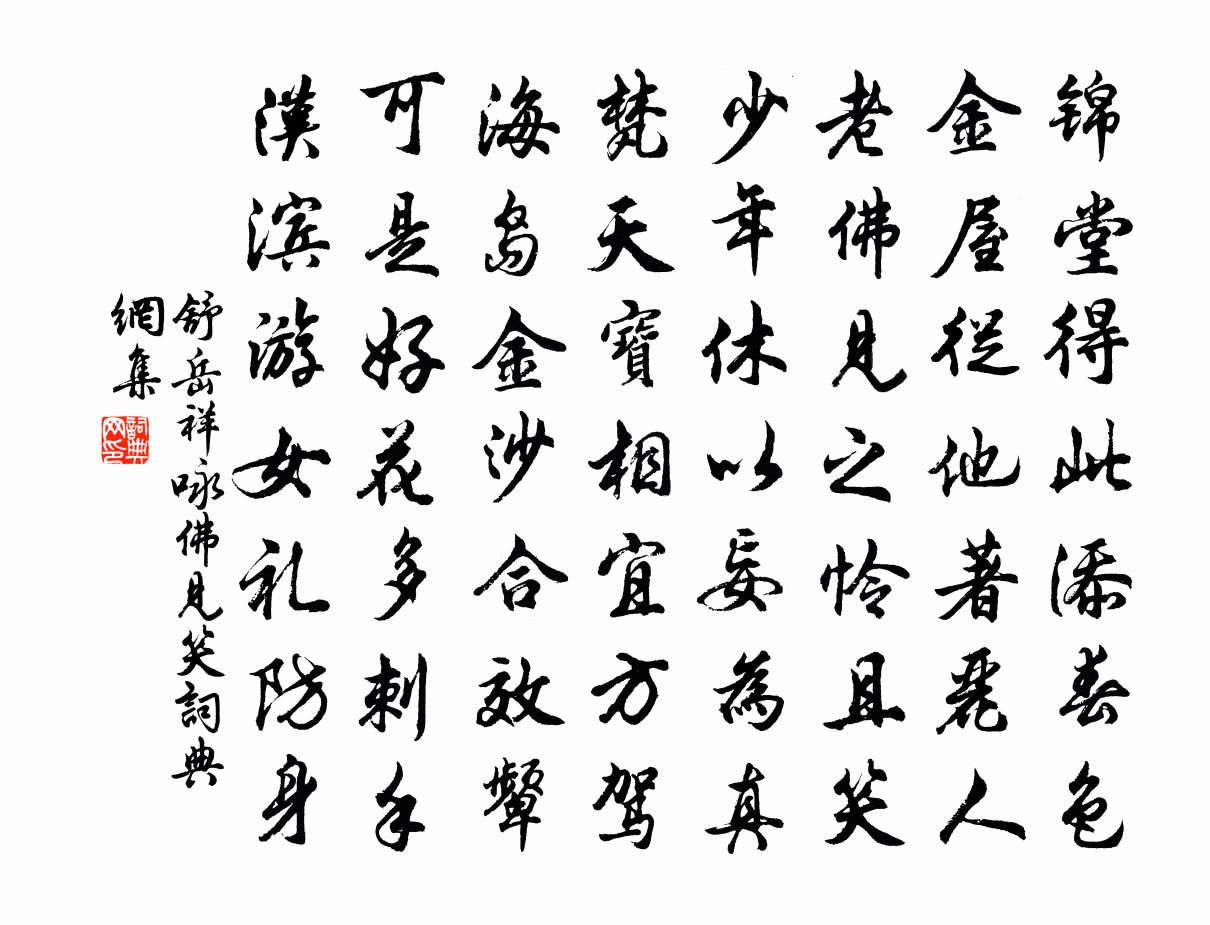 锦堂得此添春色
金屋従他著麗人
老佛見之怜且笑
少年休以妄為真
梵天寶相宜方駕
海島金沙合效顰
可是好花多刺手
漢滨游女礼防身
舒岳祥咏佛見笑詞典
網集
詞典网印